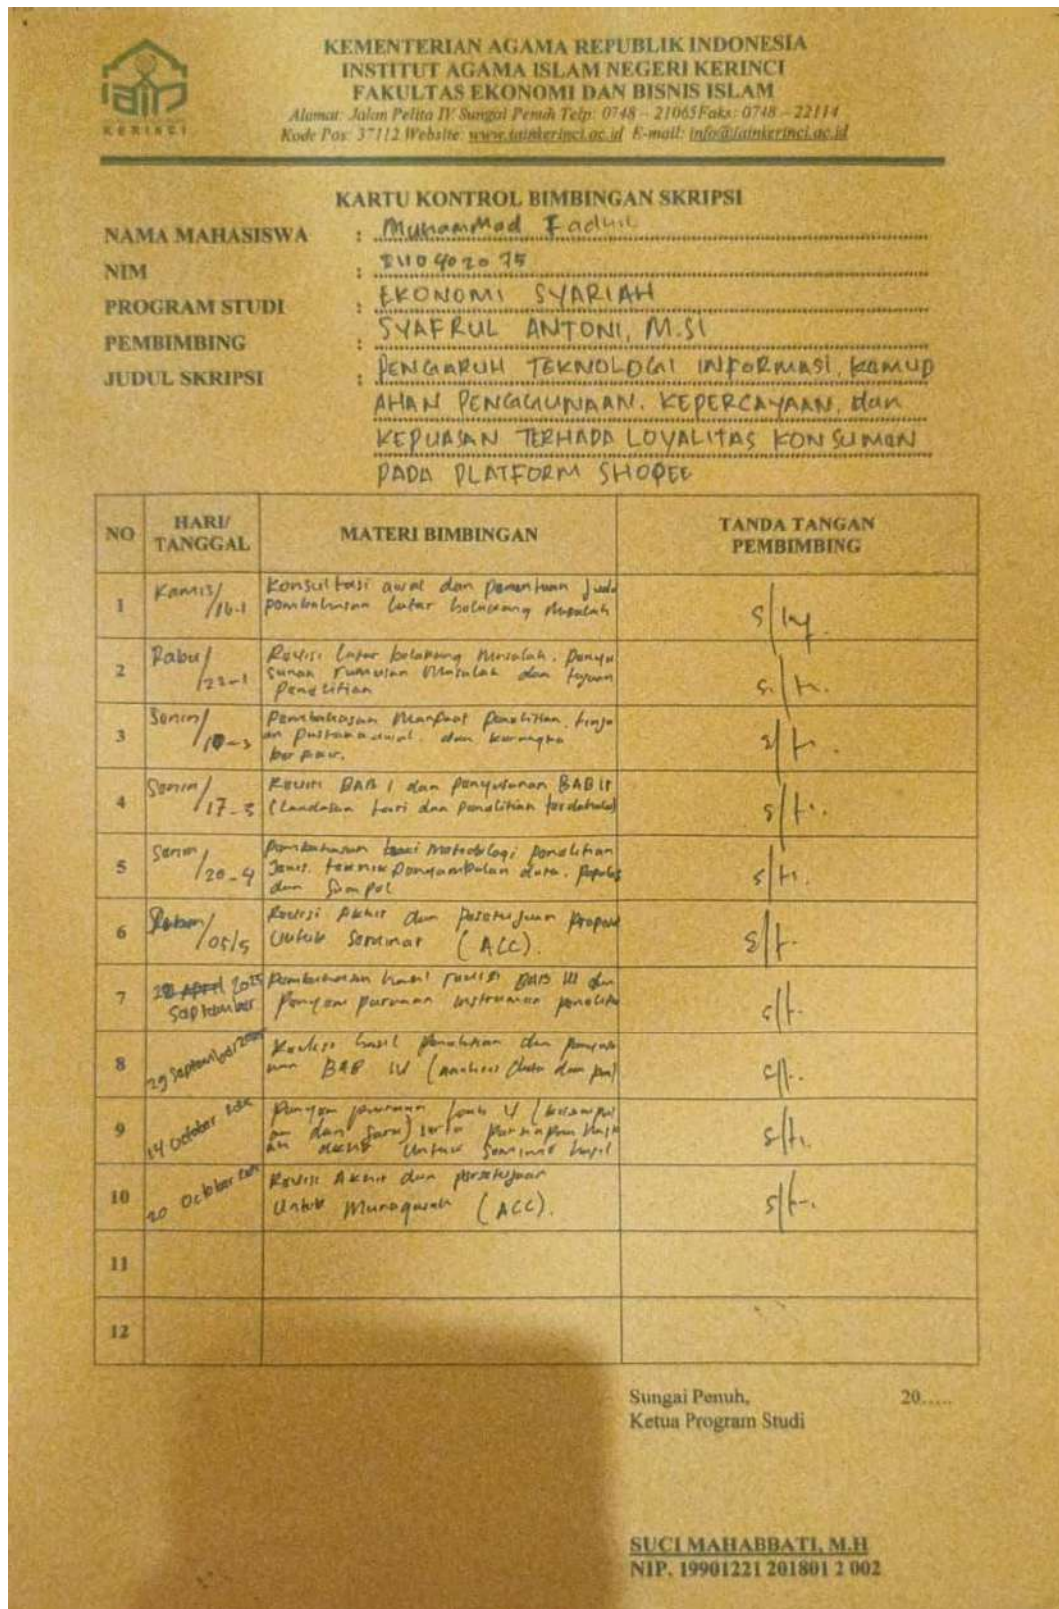 iain
KERINCI
KEMENTERIAN AGAMA REPUBLIK INDONESIA
INSTITUT AGAMA ISLAM NEGERI KERINCI
FAKULTAS EKONOMI DAN BISNIS ISLAM
Alamat: Jalan Pelita IV Sungai Penuh Telp: 0748 – 21065 Faks: 0748 – 22114
Kode Pos: 37112 Website: www.iainkerinci.ac.id E-mail: info@iainkerinci.ac.id
KARTU KONTROL BIMBINGAN SKRIPSI
NAMA MAHASISWA : Muhammad Fadhil
NIM : 2110402075
PROGRAM STUDI : EKONOMI SYARIAH
PEMBIMBING : SYAFRUL ANTONI, M.SI
JUDUL SKRIPSI : PENGARUH TEKNOLOGI INFORMASI, KEMUD
AHAN PENGGUNAAN, KEPERCAYAAN, dan
KEPUASAN TERHADA LOYALITAS KONSUMEN
PADA PLATFORM SHOPEE
NO HARI/ TANGGAL MATERI BIMBINGAN TANDA TANGAN PEMBIMBING
1 Kamis/16-1 Konsultasi awal dan penentuan judul
pembahasan latar belakang masalah
2 Rabu/22-1 Revisi latar belakang masalah, penyu
sunan rumusan masalah dan tujuan
penelitian
3 Senin/10-3 Pembahasan manfaat penelitian, tinja
an pustaka awal, dan kerangka
berpikir.
4 Senin/17-3 Revisi BAB I dan penyusunan BAB II
(Landasan teori dan penelitian terdahulu)
5 Senin/20-4 Pembahasan metodologi penelitian
Jenis, teknik pengumpulan data, populasi
dan sampel
6 05/5 Revisi Akhir dan persetujuan proposal
Untuk Seminar (ACC).
7 2025 September Pembahasan hasil revisi BAB III dan
penyempurnaan instrumen penelitia
8 29 September Revisi hasil penelitian dan
BAB IV (analisis data dan
9 14 October
dan saran) serta
untuk seminar hasil
10 20 October Revisi Akhir dan persetujuan
Untuk Munaqasah (ACC).
11
12
Sungai Penuh, 20.....
Ketua Program Studi
SUCI MAHABBATI, M.H
NIP. 19901221 201801 2 002